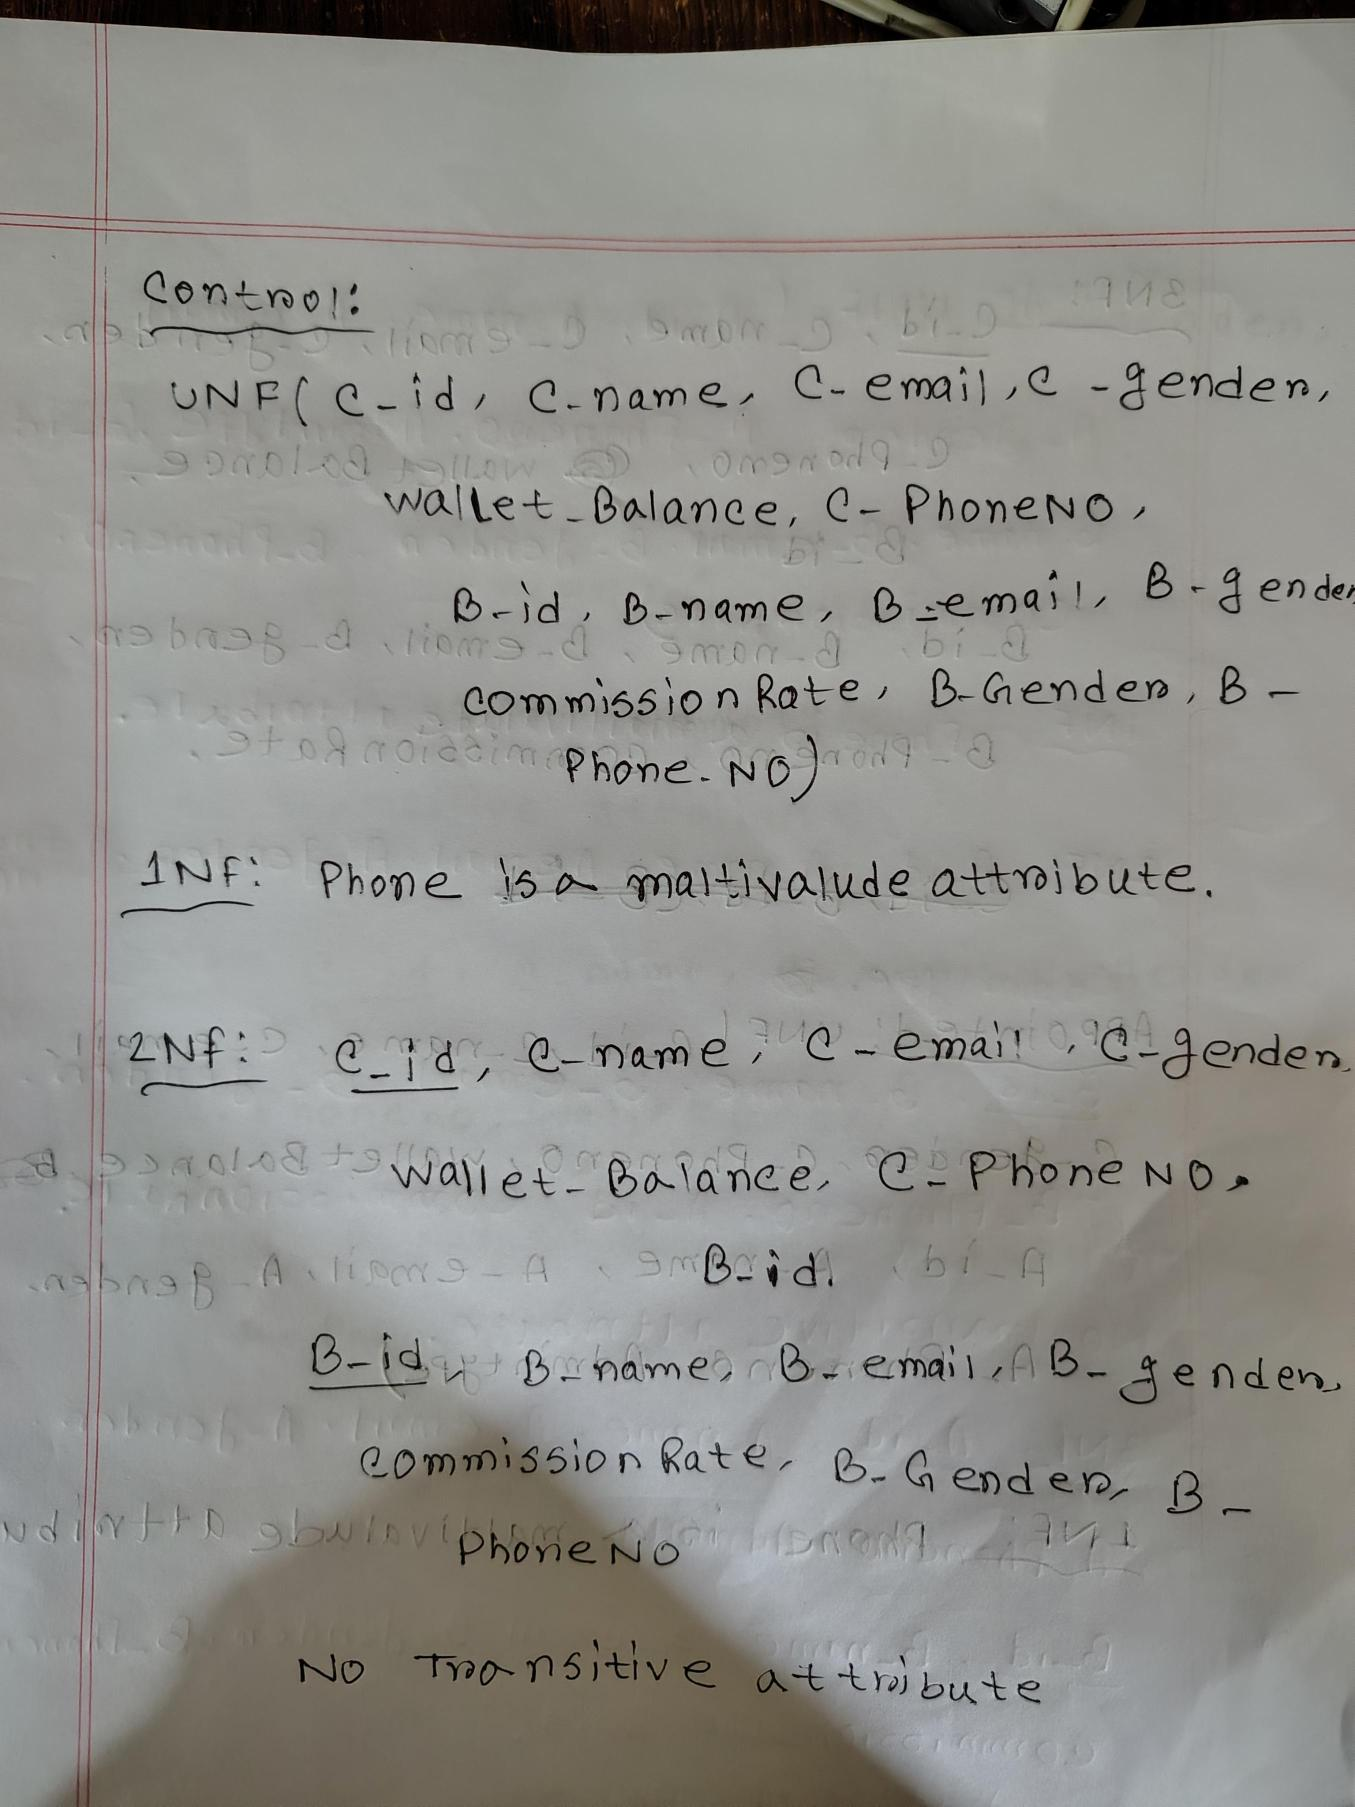 Control:
UNF( C-id, C-name, C-email, C-gender,
Wallet-Balance, C-PhoneNO,
B-id, B-name, B-email, B-gender
Commission Rate, B-Gender, B-
Phone-NO)
1NF: Phone is a maltivalude attribute.
2NF: C-id, C-name, C-email, C-gender,
Wallet-Balance, C-Phone NO,
B-id.
B-id, B-name, B-email, B-gender,
Commission Rate, B-Gender, B-
Phone NO
No Transitive attribute